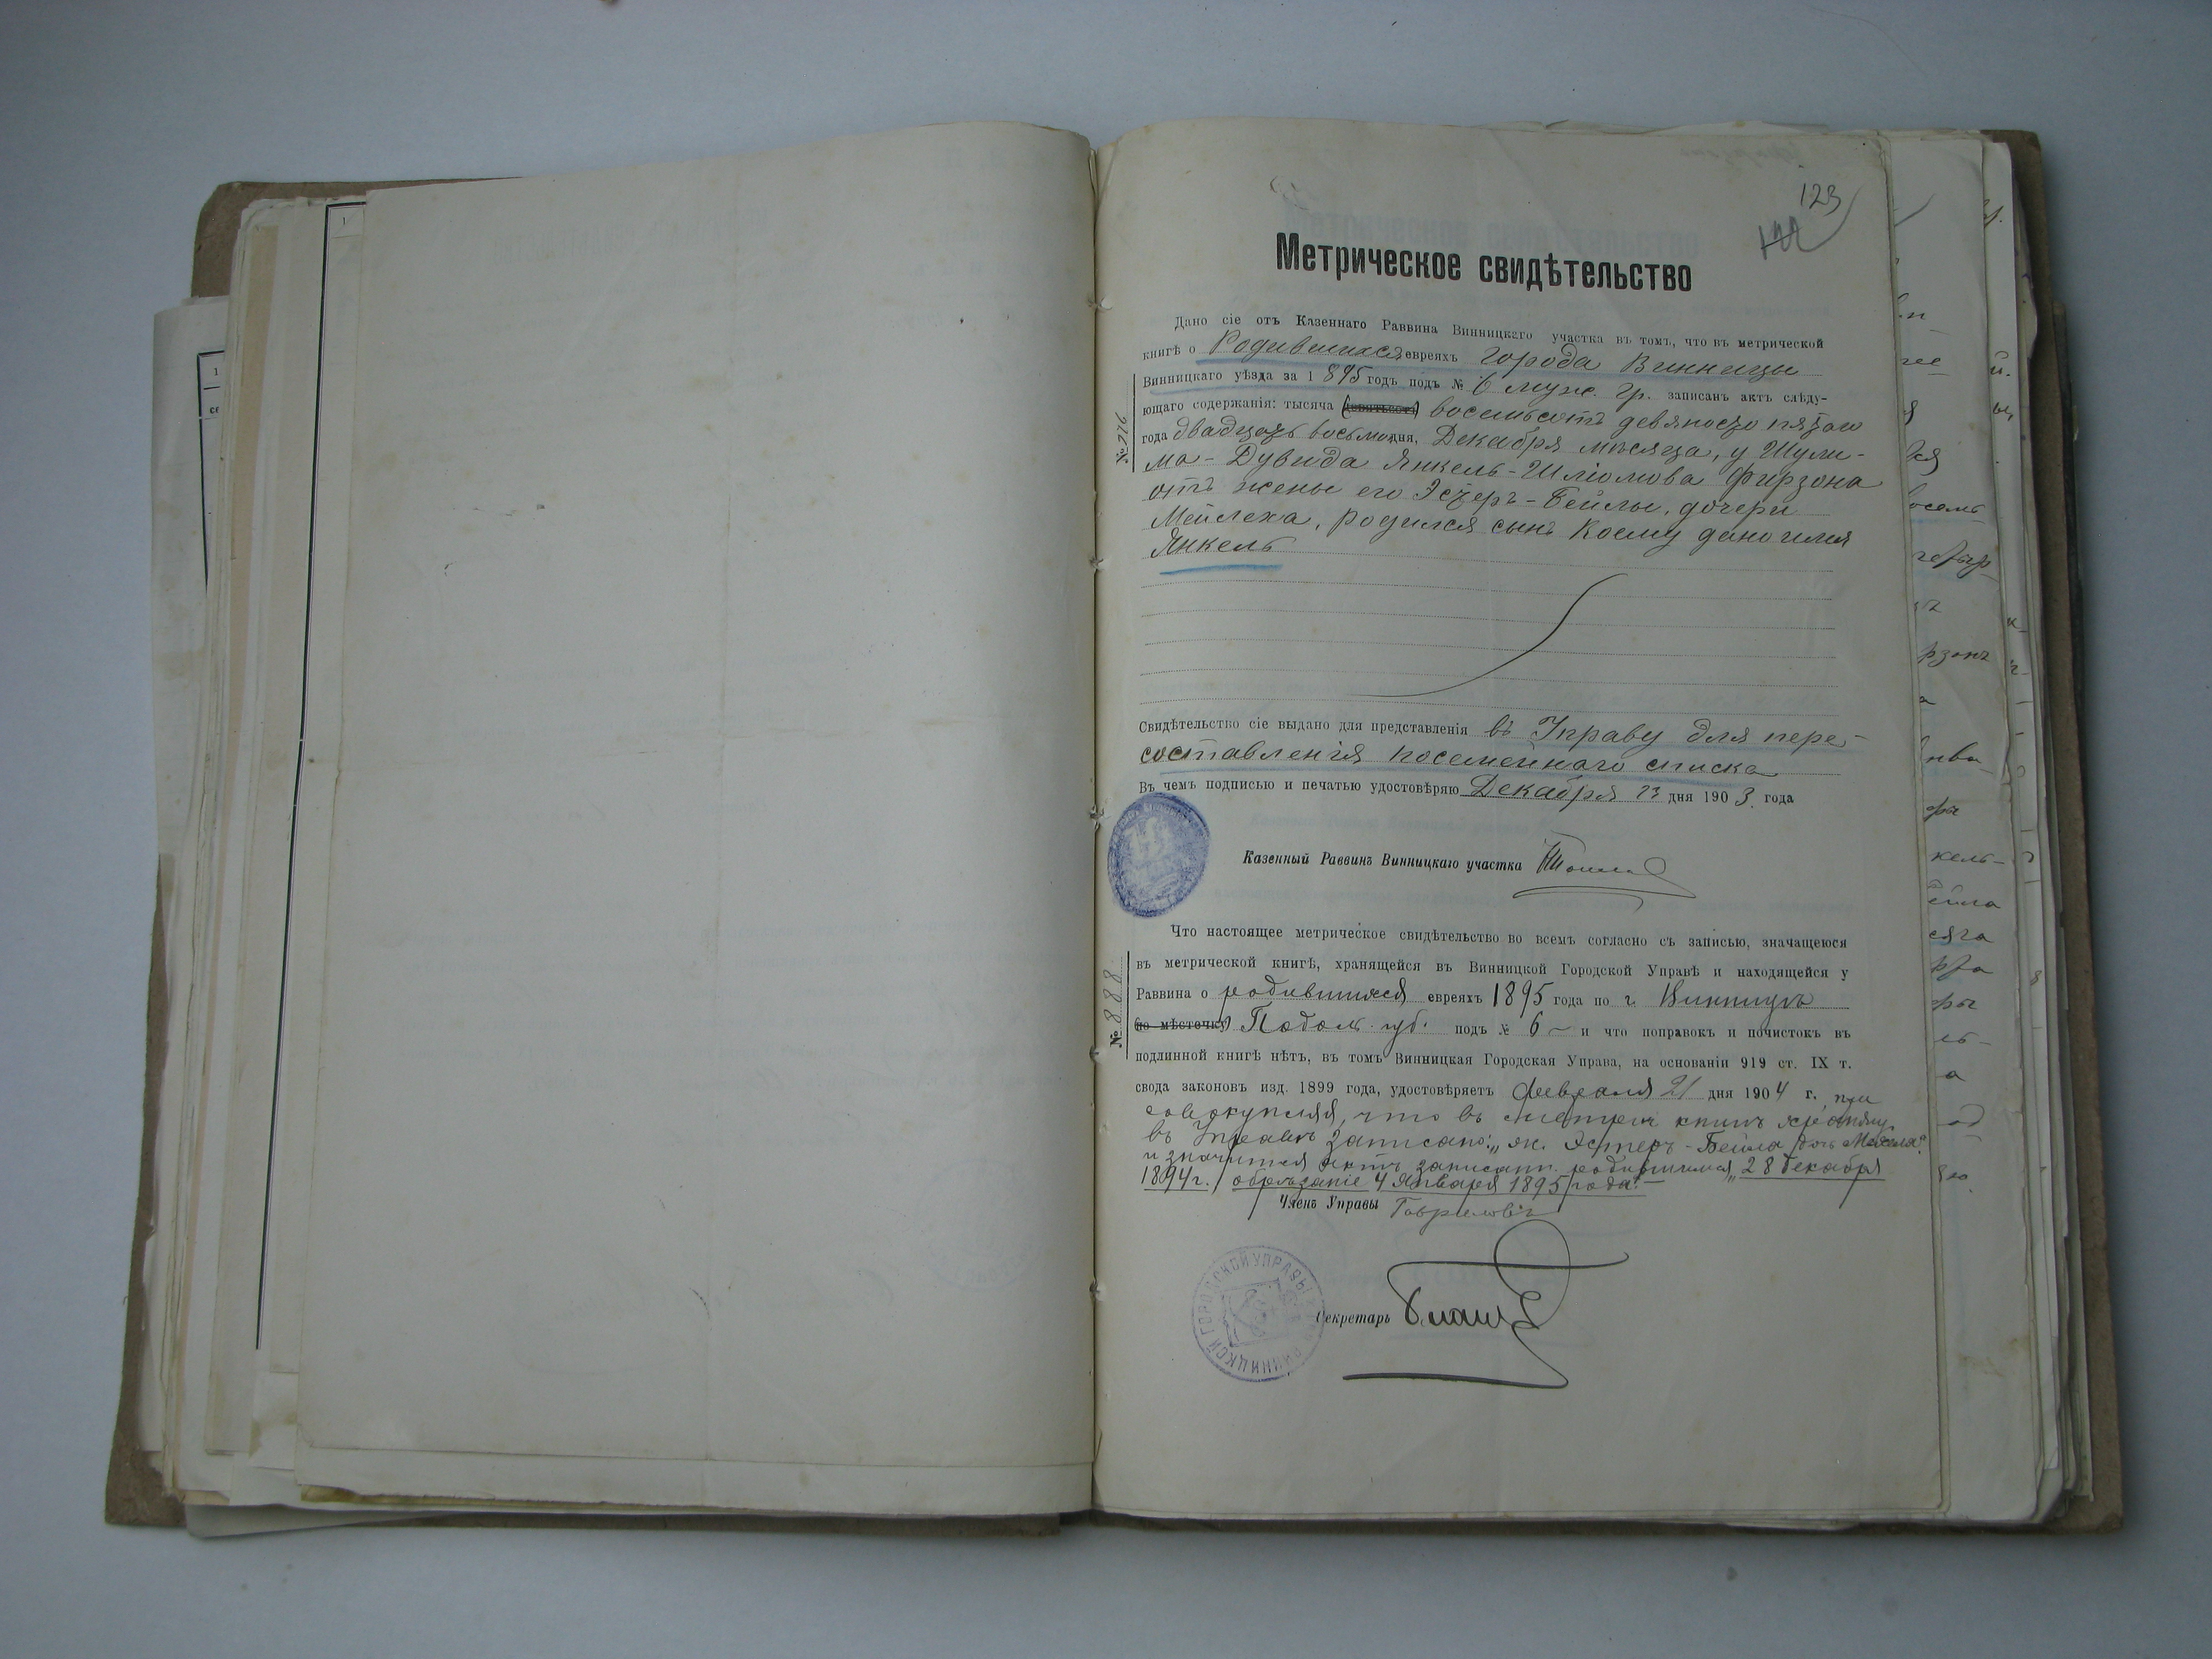 123
Метрическое свидѣтельство
Дано сіе отъ Казеннаго Раввина Винницкаго участка въ томъ, что въ метрической
книгѣ о Родившихся евреяхъ города Винницы
Винницкаго уѣзда за 1895 годъ подъ № 6 муж. гр. записанъ актъ слѣду-
ющаго содержанія: тысяча (девятьсотъ) восемьсотъ девяносто пятаго
года двадцать восьмого дня, Декабря мѣсяца, у Шули-
ма-Дувида Янкель-Шліомова Фирзона
отъ жены его Эстеръ-Бейлы, дочери
Мейлеха, родился сынъ коему дано имя
Янкель
№ 276
Свидѣтельство сіе выдано для представленія въ Управу для пере-
составленія посемейнаго списка
Въ чемъ подписью и печатью удостовѣряю Декабря 23 дня 1903 года
Казенный Раввинъ Винницкаго участка
Что настоящее метрическое свидѣтельство во всемъ согласно съ записью, значащеюся
въ метрической книгѣ, хранящейся въ Винницкой Городской Управѣ и находящейся у
Раввина о родившихся евреяхъ 1895 года по г. Винницѣ
(по мѣстечку) Подол. губ. подъ № 6 и что поправокъ и почистокъ въ
подлинной книгѣ нѣтъ, въ томъ Винницкая Городская Управа, на основаніи 919 ст. IX т.
свода законовъ изд. 1899 года, удостовѣряетъ Февраля 21 дня 1904 г. при
совокупляя, что въ метрич книгѣ
въ Управѣ записано: „ж. Эстеръ-Бейла дочь
и значится актъ записан. родившимся „28 декабря
1894 г./ обрѣзаніе 4 Января 1895 года“.
№ 888
Членъ Управы Гавриловъ
Секретарь
ВИННИЦКОЙ ГОРОДСКОЙ УПРАВЫ